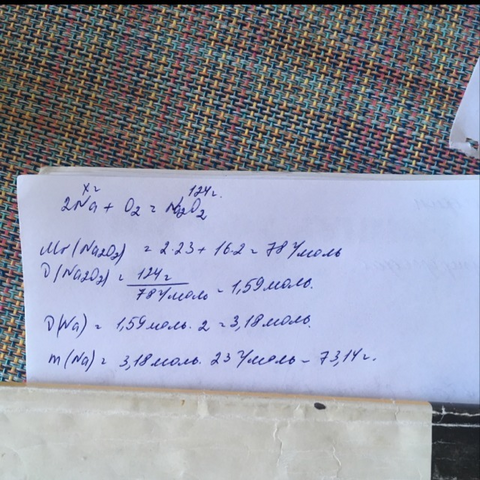 х г 124 г.
2Na + O2 = Na2O2
Mr(Na2O2) = 2·23 + 16·2 = 78 г/моль
υ(Na2O2) = 124 г / 78 г/моль = 1,59 моль.
υ(Na) = 1,59 моль · 2 = 3,18 моль.
m(Na) = 3,18 моль · 23 г/моль = 73,14 г.